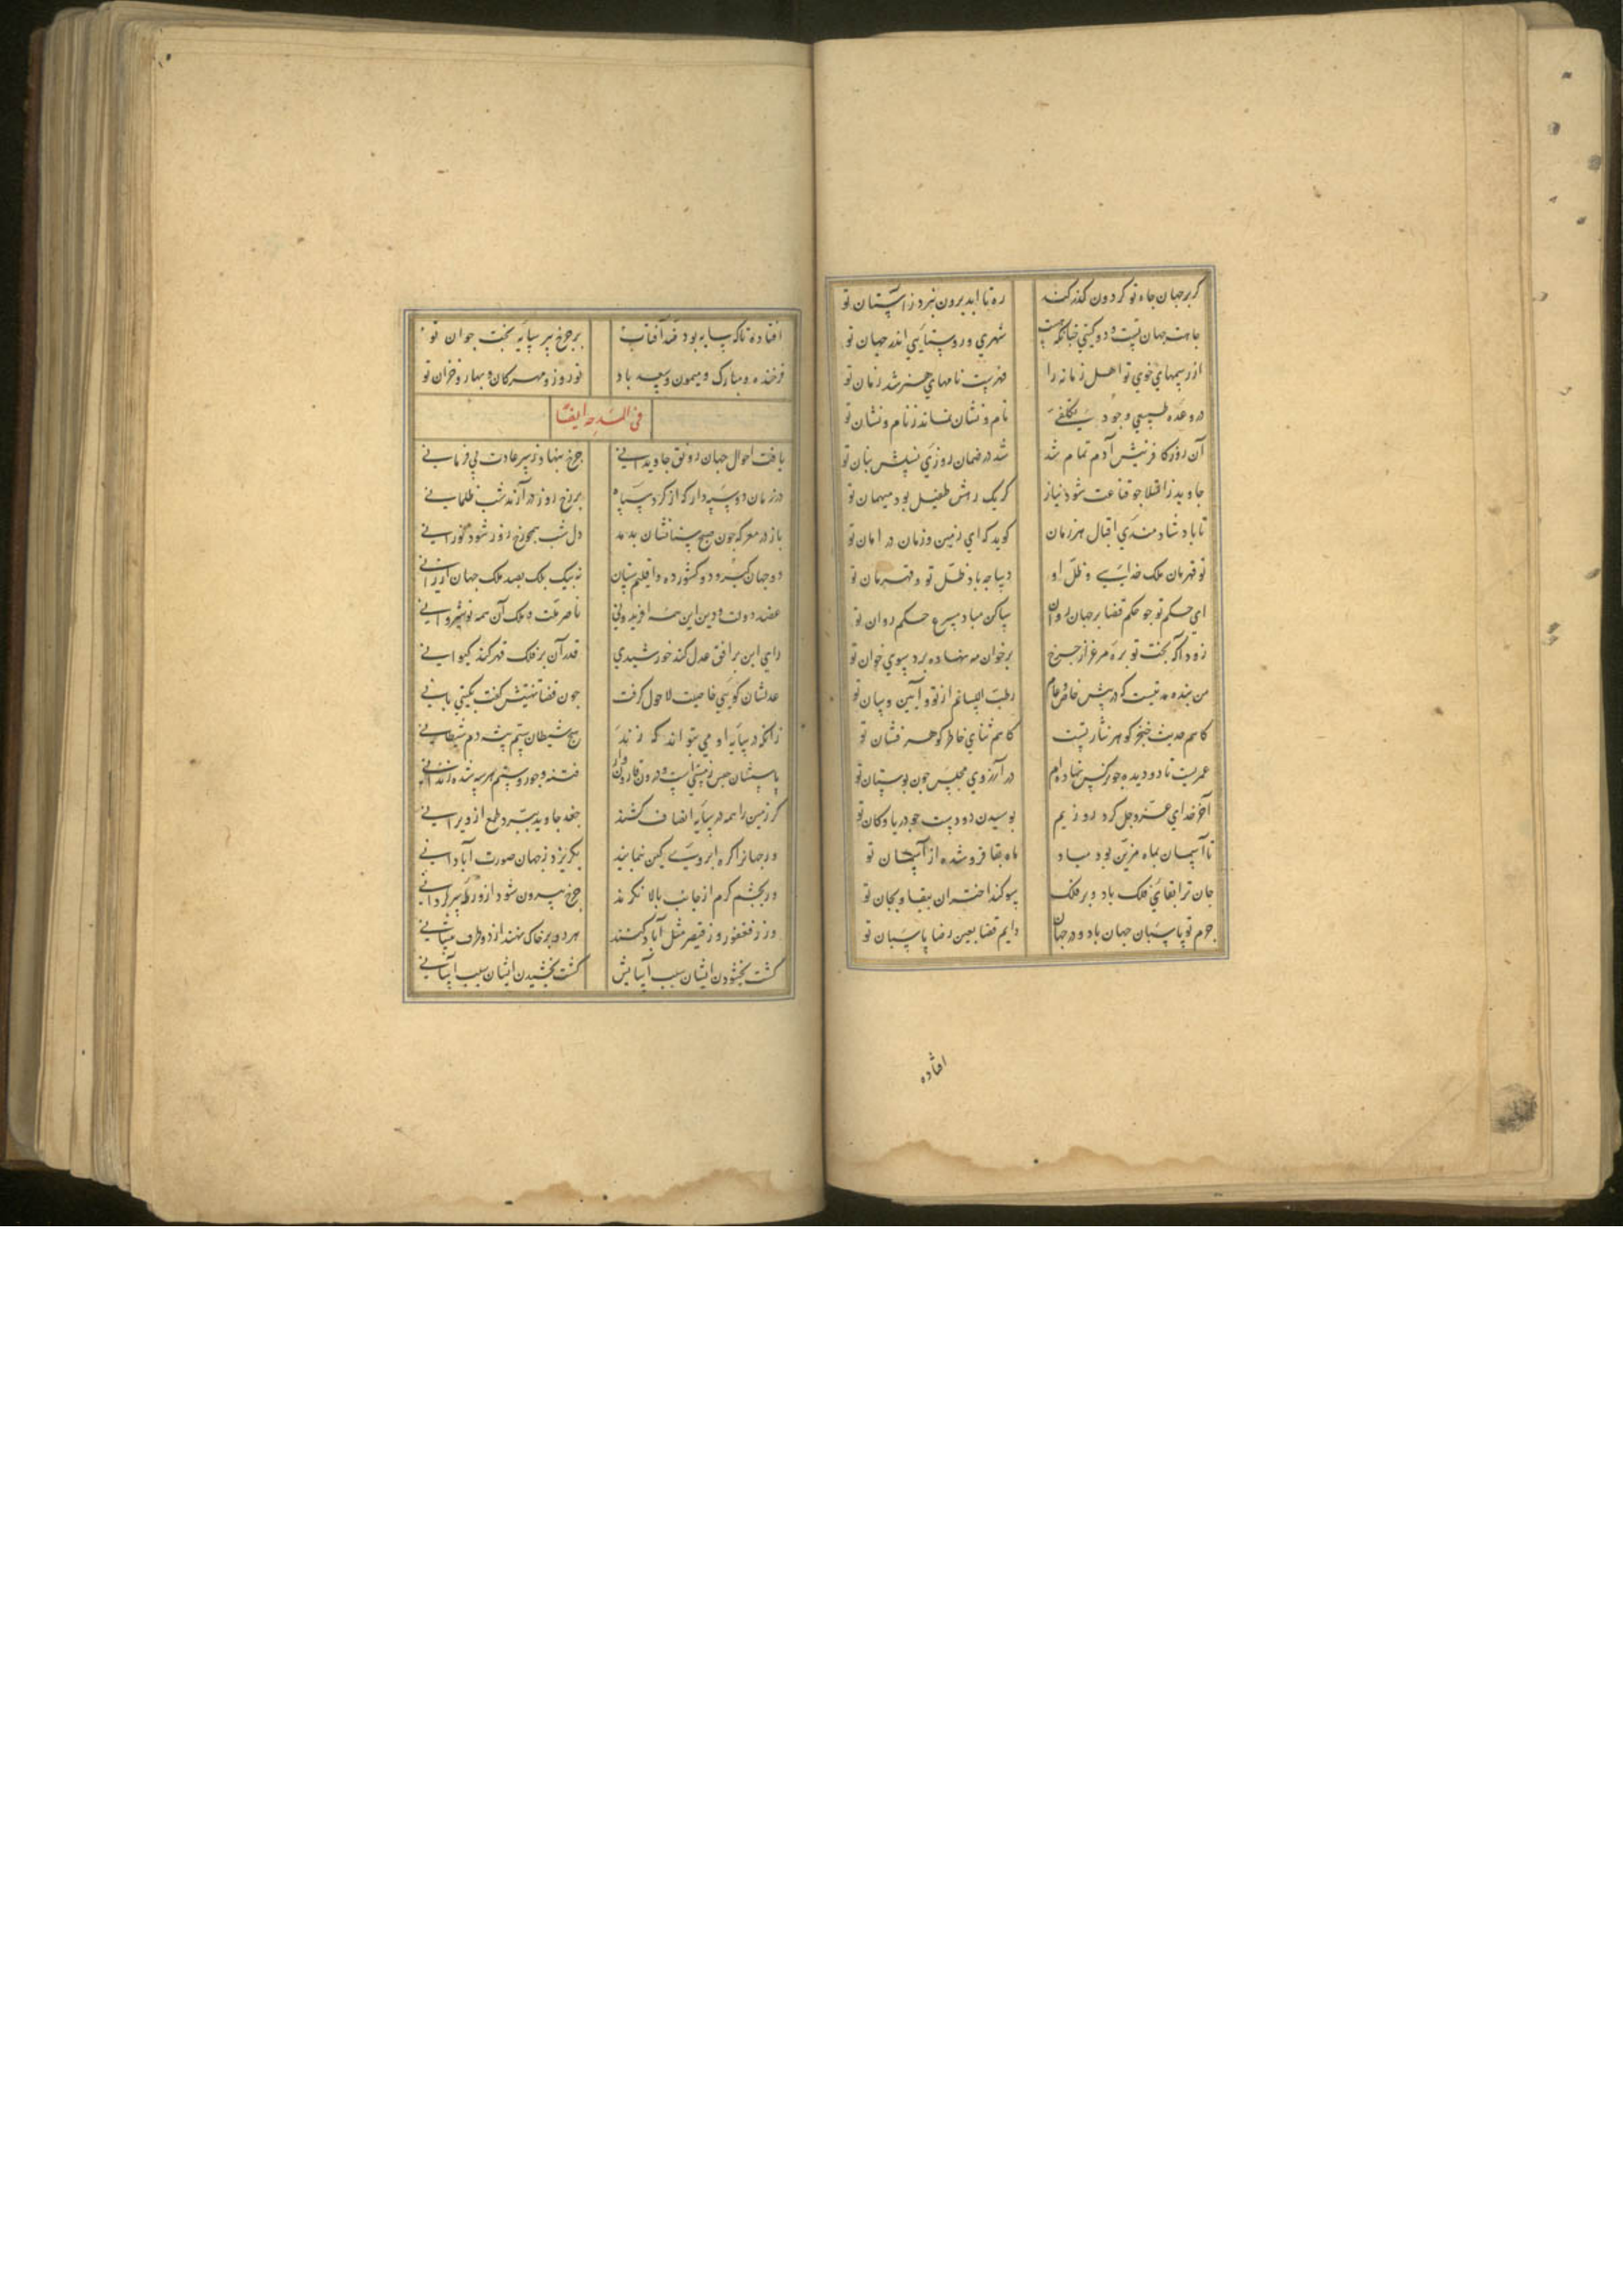 کر بر جهان جاه تو کردون کذر کند ره تا ابد برون نبرد ز آستان تو
جاهت جهان تست و دو کیتی چنانکه هست شهری و روستایی اندر جهان تو
از رسمهای خوی تو اهل زمانه را فهرست نامهای هنر شد زمان تو
در وعده طبیعی وجود بی تکلفی نام و نشان نماند ز نام و نشان تو
آن روز کافرینش آدم تمام شد شد در ضمان روزی نسلش بنان تو
جاوید ز امتلا جو قناعت شود نیاز کر یک رهش طفیل بود میهمان تو
تا باد شادمندی اقبال هر زمان کوید که ای زمین و زمان در امان تو
تو قهرمان ملک خدایی و ظل او دیباجه باد ظل تو و قهرمان تو
ای حکم تو جو حکم قضا بر جهان روان ساکن مباد سرع حکم روان تو
زود آکه بخت تو بره مرغزار جرخ بر خوان مه نهاده برد سوی خوان تو
من بنده مدتیست که در پیش خاص و عام رطب اللسانم از تو و آیین و سان تو
کاهم حدیث خنجر کوهر نثار تست کاهم ثنای خاطر کوهر فشان تو
عمریست تا دو دیده جو نرکس نهاده ام در آرزوی مجلس جون بوستان تو
آخر خدای عز و جل کرد روزیم بوسیدن دو دست جو دریا و کان تو
تا آسمان بماه مزین بود مباد ماه بقا فرو شده از آسمان تو
جان ترا بقای فلک باد و بر فلک سوکند اختران ببقا و بجان تو
حزم تو پاسبان جهان باد و در جهان دایم قضا بعین رضا پاسبان تو
افتاده
افتاده تا که سایه بود ضد آفتاب بر جرخ پیر سایه بخت جوان تو
فرخنده و مبارک و میمون و سعید باد نوروز و مهرکان و بهار و خزان تو
فی المدحه ایضا
یافت احوال جهان رونق جاویدانی جرخ بنهاد ز سر عادت بی فرمانی
در زمان دو سپهدار که از کرد سپاه بر رخ روز در آرند شب ظلمانی
باز در معرکه جون صبح سنانشان بدمد دل شب همجو رخ روز شود نورانی
دو جهان کیر و دو کشور ده و اقلیم ستان نه بیک ملک بصد ملک جهان ارزانی
عضد دولت و دین این همه افریدونی ناصر ملت و ملک آن همه نوشروانی
رای این بر افق عدل کند خورشیدی قدر آن بر فلک قهر کند کیوانی
عدلشان کویی خاصیت لاحول کرفت جون قضا تهنیتش کفت بکیتی بانی
زانکه در سایه او می نتواند که زند هیج شیطان ستم پیشه دم شیطانی
پاسشان حبس زمینست و درون قارون وار فتنه و جور و ستم هر سه شده زندانی
کر زمین را همه در سایه انصاف کشند جغد جاوید ببرد طمع از ویرانی
ور جهانرا کره ابروی کین نمایند بکریزد ز جهان صورت آبادانی
ور بجشم کرم از جانب بالا نکرند جرخ بیرون شود از ورطه سرکردانی
ور ز فغفور و ز قیصر مثل آباد کنند هر دو بر خاک نهند از دو طرف پیشانی
کشت بخشودن ایشان سبب آسایش کشت بخشیدن ایشان سبب آسانی